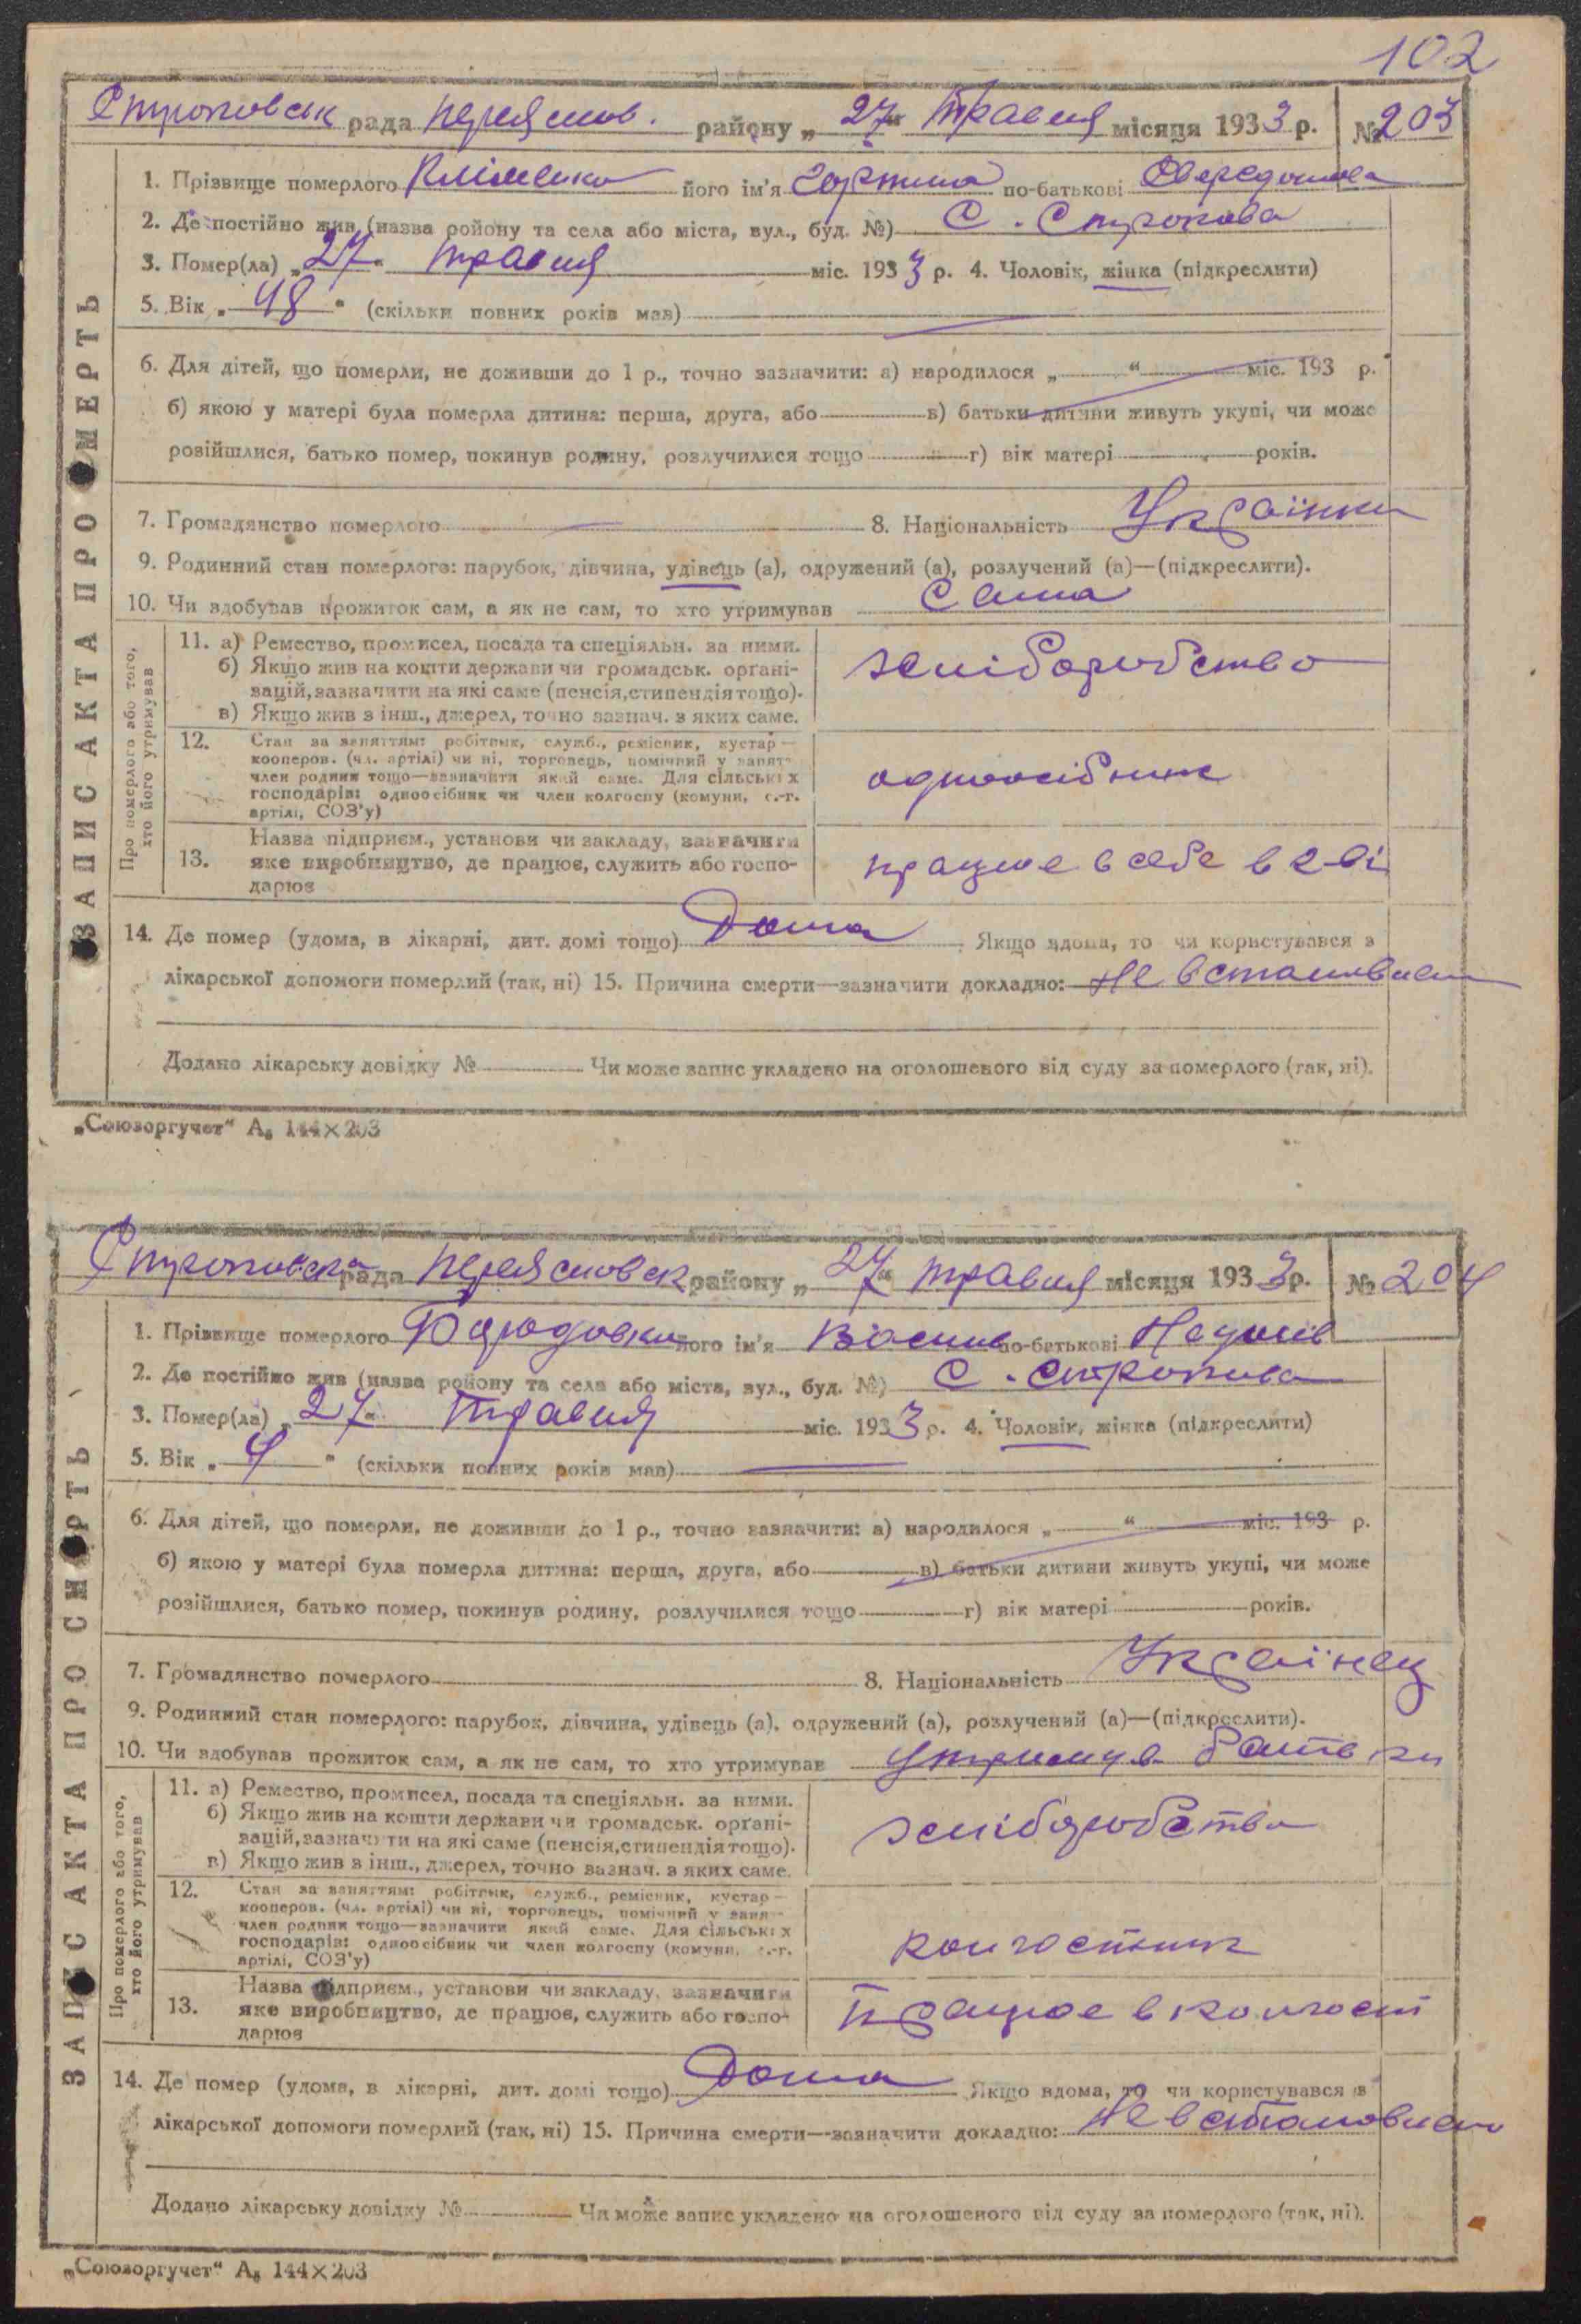 102
Строковськ рада Переяслов. району „ 27 “ травня місяця 1933 р. № 203
ЗАПИС АКТА ПРО СМЕРТЬ
1. Прізвище померлого Кліменко його ім'я по-батькові
2. Де постійно жив (назва району та села або міста, вул., буд. №) С. Строкова
3. Помер(ла) „ 27 “ травня міс. 1933 р. 4. Чоловік, жінка (підкреслити)
5. Вік „ 48 “ (скільки повних років мав)
6. Для дітей, що померли, не доживши до 1 р., точно зазначити: а) народилося „ “ міс. 193 р.
б) якою у матері була померла дитина: перша, друга, або в) батьки дитини живуть укупі, чи може
розійшлися, батько помер, покинув родину, розлучилися тощо г) вік матері років.
7. Громадянство померлого 8. Національність Українка
9. Родинний стан померлого: парубок, дівчина, удівець (а), одружений (а), розлучений (а)—(підкреслити).
10. Чи здобував прожиток сам, а як не сам, то хто утримував Сама
Про померлого або того, хто його утримував
11. а) Ремество, промисел, посада та спеціяльн. за ними.
б) Якщо жив на кошти держави чи громадськ. орґані-
зацій, зазначити на які саме (пенсія, стипендія тощо).
в) Якщо жив з інш., джерел, точно зазнач. з яких саме.
хліборобство
12. Стан за заняттям: робітник, служб., ремісник, кустар—
кооперов. (чл. артілі) чи ні, торговець, помічний у занят-
член родини тощо—зазначити який саме. Для сільських
господарів: одноосібник чи член колгоспу (комуни, с.-г.
артілі, СОЗ'у)
одноосібник
13. Назва підприєм., установи чи закладу, зазначити
яке виробництво, де працює, служить або госпо-
дарює
працює в себе в г-ві
14. Де помер (удома, в лікарні, дит. домі тощо) Дома Якщо вдома, то чи користувався з
лікарської допомоги померлий (так, ні) 15. Причина смерти—зазначити докладно: не встановлен
Додано лікарську довідку № Чи може запис укладено на оголошеного від суду за померлого (так, ні).
„Союзоргучет“ А₅ 144×203
Строковська рада Переясловск району „ 27 “ травня місяця 1933 р. № 204
ЗАПИС АКТА ПРО СМЕРТЬ
1. Прізвище померлого його ім'я Василь по-батькові Наумів
2. Де постійно жив (назва району та села або міста, вул., буд. №) С. Строкова
3. Помер(ла) „ 27 “ травня міс. 1933 р. 4. Чоловік, жінка (підкреслити)
5. Вік „ 4 “ (скільки повних років мав)
6. Для дітей, що померли, не доживши до 1 р., точно зазначити: а) народилося „ “ міс. 193 р.
б) якою у матері була померла дитина: перша, друга, або в) батьки дитини живуть укупі, чи може
розійшлися, батько помер, покинув родину, розлучилися тощо г) вік матері років.
7. Громадянство померлого 8. Національність Українец
9. Родинний стан померлого: парубок, дівчина, удівець (а), одружений (а), розлучений (а)—(підкреслити).
10. Чи здобував прожиток сам, а як не сам, то хто утримував утримув батьки
Про померлого або того, хто його утримував
11. а) Ремество, промисел, посада та спеціяльн. за ними.
б) Якщо жив на кошти держави чи громадськ. орґані-
зацій, зазначити на які саме (пенсія, стипендія тощо).
в) Якщо жив з інш., джерел, точно зазнач. з яких саме.
хліборобство
12. Стан за заняттям: робітник, служб., ремісник, кустар—
кооперов. (чл. артілі) чи ні, торговець, помічний у занят-
член родини тощо—зазначити який саме. Для сільських
господарів: одноосібник чи член колгоспу (комуни, с.-г.
артілі, СОЗ'у)
колгоспник
13. Назва підприєм., установи чи закладу, зазначити
яке виробництво, де працює, служить або госпо-
дарює
працює в колгосп
14. Де помер (удома, в лікарні, дит. домі тощо) Дома Якщо вдома, то чи користувався з
лікарської допомоги померлий (так, ні) 15. Причина смерти—зазначити докладно: не встановлен
Додано лікарську довідку № Чи може запис укладено на оголошеного від суду за померлого (так, ні).
„Союзоргучет“ А₅ 144×203